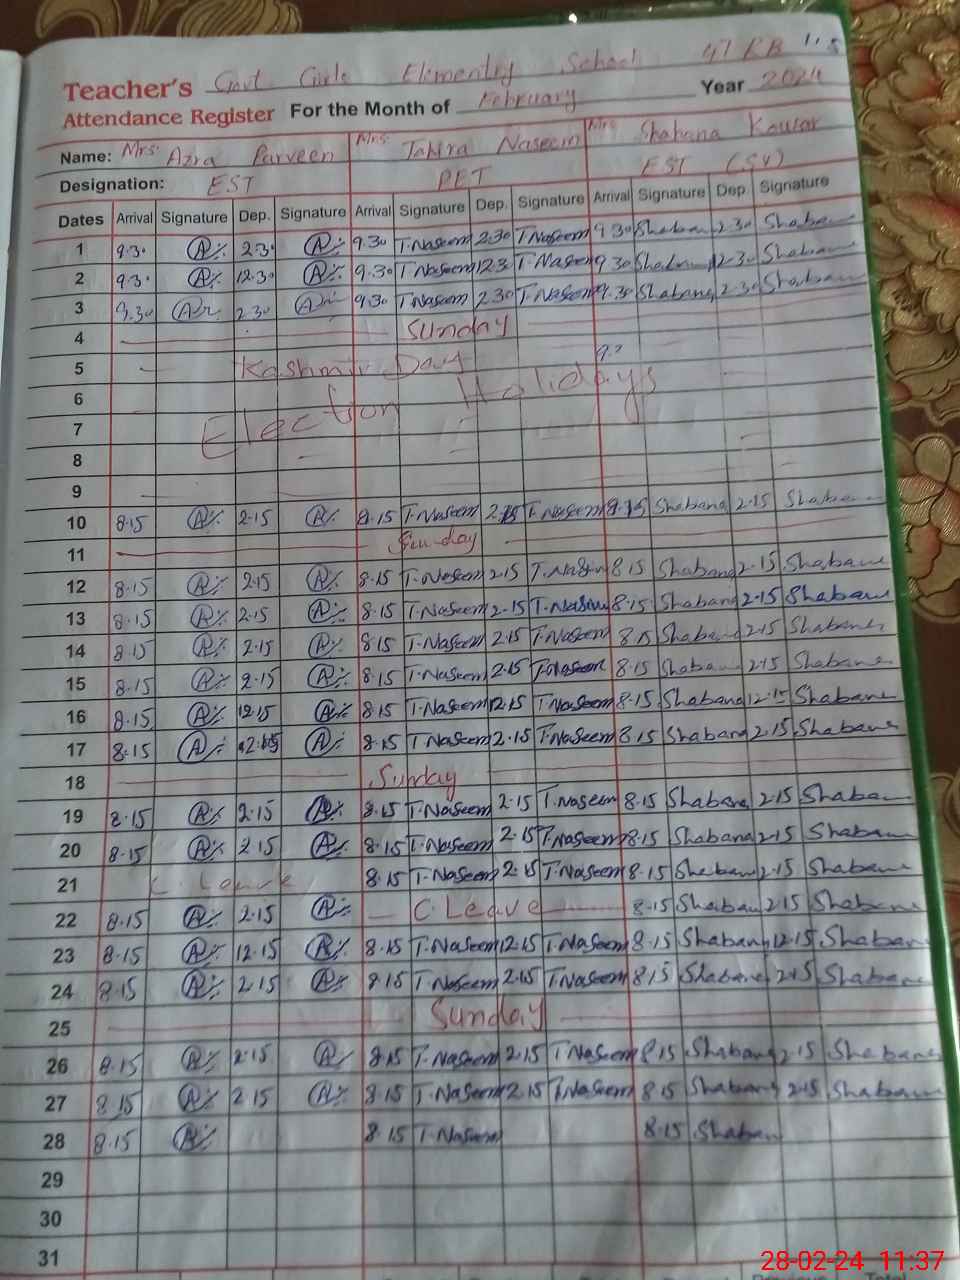 Teacher's Govt Girls Elementry School 47 RB
Attendance Register For the Month of February Year 2024
Name: Mrs. Azra Parveen Mrs. Tahira Naseem Mrs. Shabana Kawsar
Designation: EST PET EST (SV)
Dates Arrival Signature Dep. Signature Arrival Signature Dep. Signature Arrival Signature Dep. Signature
1 9.30 2.30 9.30 T.Naseem 2.30 T.Naseem 9.30 Shaban 2.30 Shabana
2 9.30 12.30 9.30 T.Naseem 12.3 T.Naseem 9.30 Shabana 12.30 Shabana
3 9.30 2.30 9.30 T.Naseem 2.30 T.Naseem 9.30 Shabana 2.30 Shabana
4 Sunday
5 Kashmir Day
6 Election Holidays
7
8
9
10 8.15 2.15 8.15 T.Naseem 2.15 T.Naseem 8.15 Shabana 2.15 Shabana
11 Sunday
12 8.15 2.15 8.15 T.Naseem 2.15 T.Naseem 8.15 Shabana 2.15 Shabana
13 8.15 2.15 8.15 T.Naseem 2.15 T.Naseem 8.15 Shabana 2.15 Shabana
14 8.15 2.15 8.15 T.Naseem 2.15 T.Naseem 8.15 Shabana 2.15 Shabana
15 8.15 2.15 8.15 T.Naseem 2.15 T.Naseem 8.15 Shabana 2.15 Shabana
16 8.15 12.15 8.15 T.Naseem 12.15 T.Naseem 8.15 Shabana 12.15 Shabana
17 8.15 2.15 8.15 T.Naseem 2.15 T.Naseem 8.15 Shabana 2.15 Shabana
18 Sunday
19 8.15 2.15 8.15 T.Naseem 2.15 T.Naseem 8.15 Shabana 2.15 Shabana
20 8.15 2.15 8.15 T.Naseem 2.15 T.Naseem 8.15 Shabana 2.15 Shabana
21 C. Leave 8.15 T.Naseem 2.15 T.Naseem 8.15 Shabana 2.15 Shabana
22 8.15 2.15 C.Leave 8.15 Shabana 2.15 Shabana
23 8.15 12.15 8.15 T.Naseem 12.15 T.Naseem 8.15 Shabana 12.15 Shabana
24 8.15 2.15 8.15 T.Naseem 2.15 T.Naseem 8.15 Shabana 2.15 Shabana
25 Sunday
26 8.15 2.15 8.15 T.Naseem 2.15 T.Naseem 8.15 Shabana 2.15 Shabana
27 8.15 2.15 8.15 T.Naseem 2.15 T.Naseem 8.15 Shabana 2.15 Shabana
28 8.15 8.15 T.Naseem 8.15 Shaban
29
30
31
28-02-24 11:37